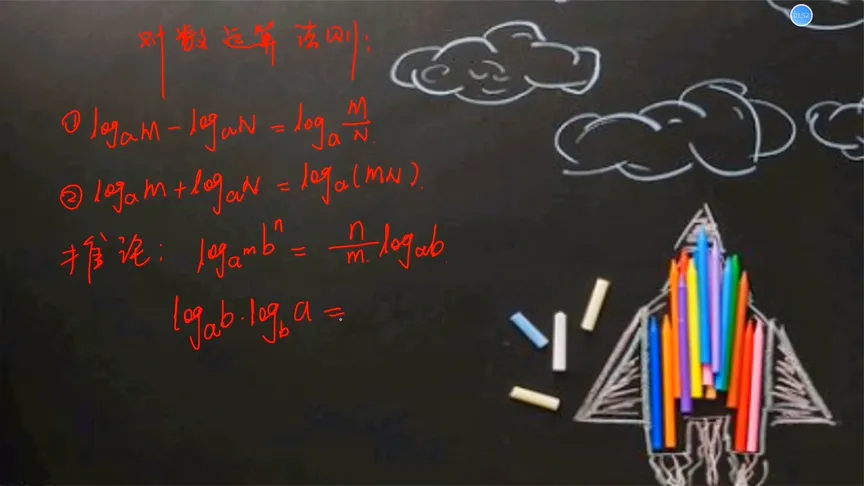 对数运算法则:
① logₐM - logₐN = logₐ M/N.
② logₐM + logₐN = logₐ(MN).
推论: log_{a^m} b^n = n/m. logₐb.
logₐb · log_b a =